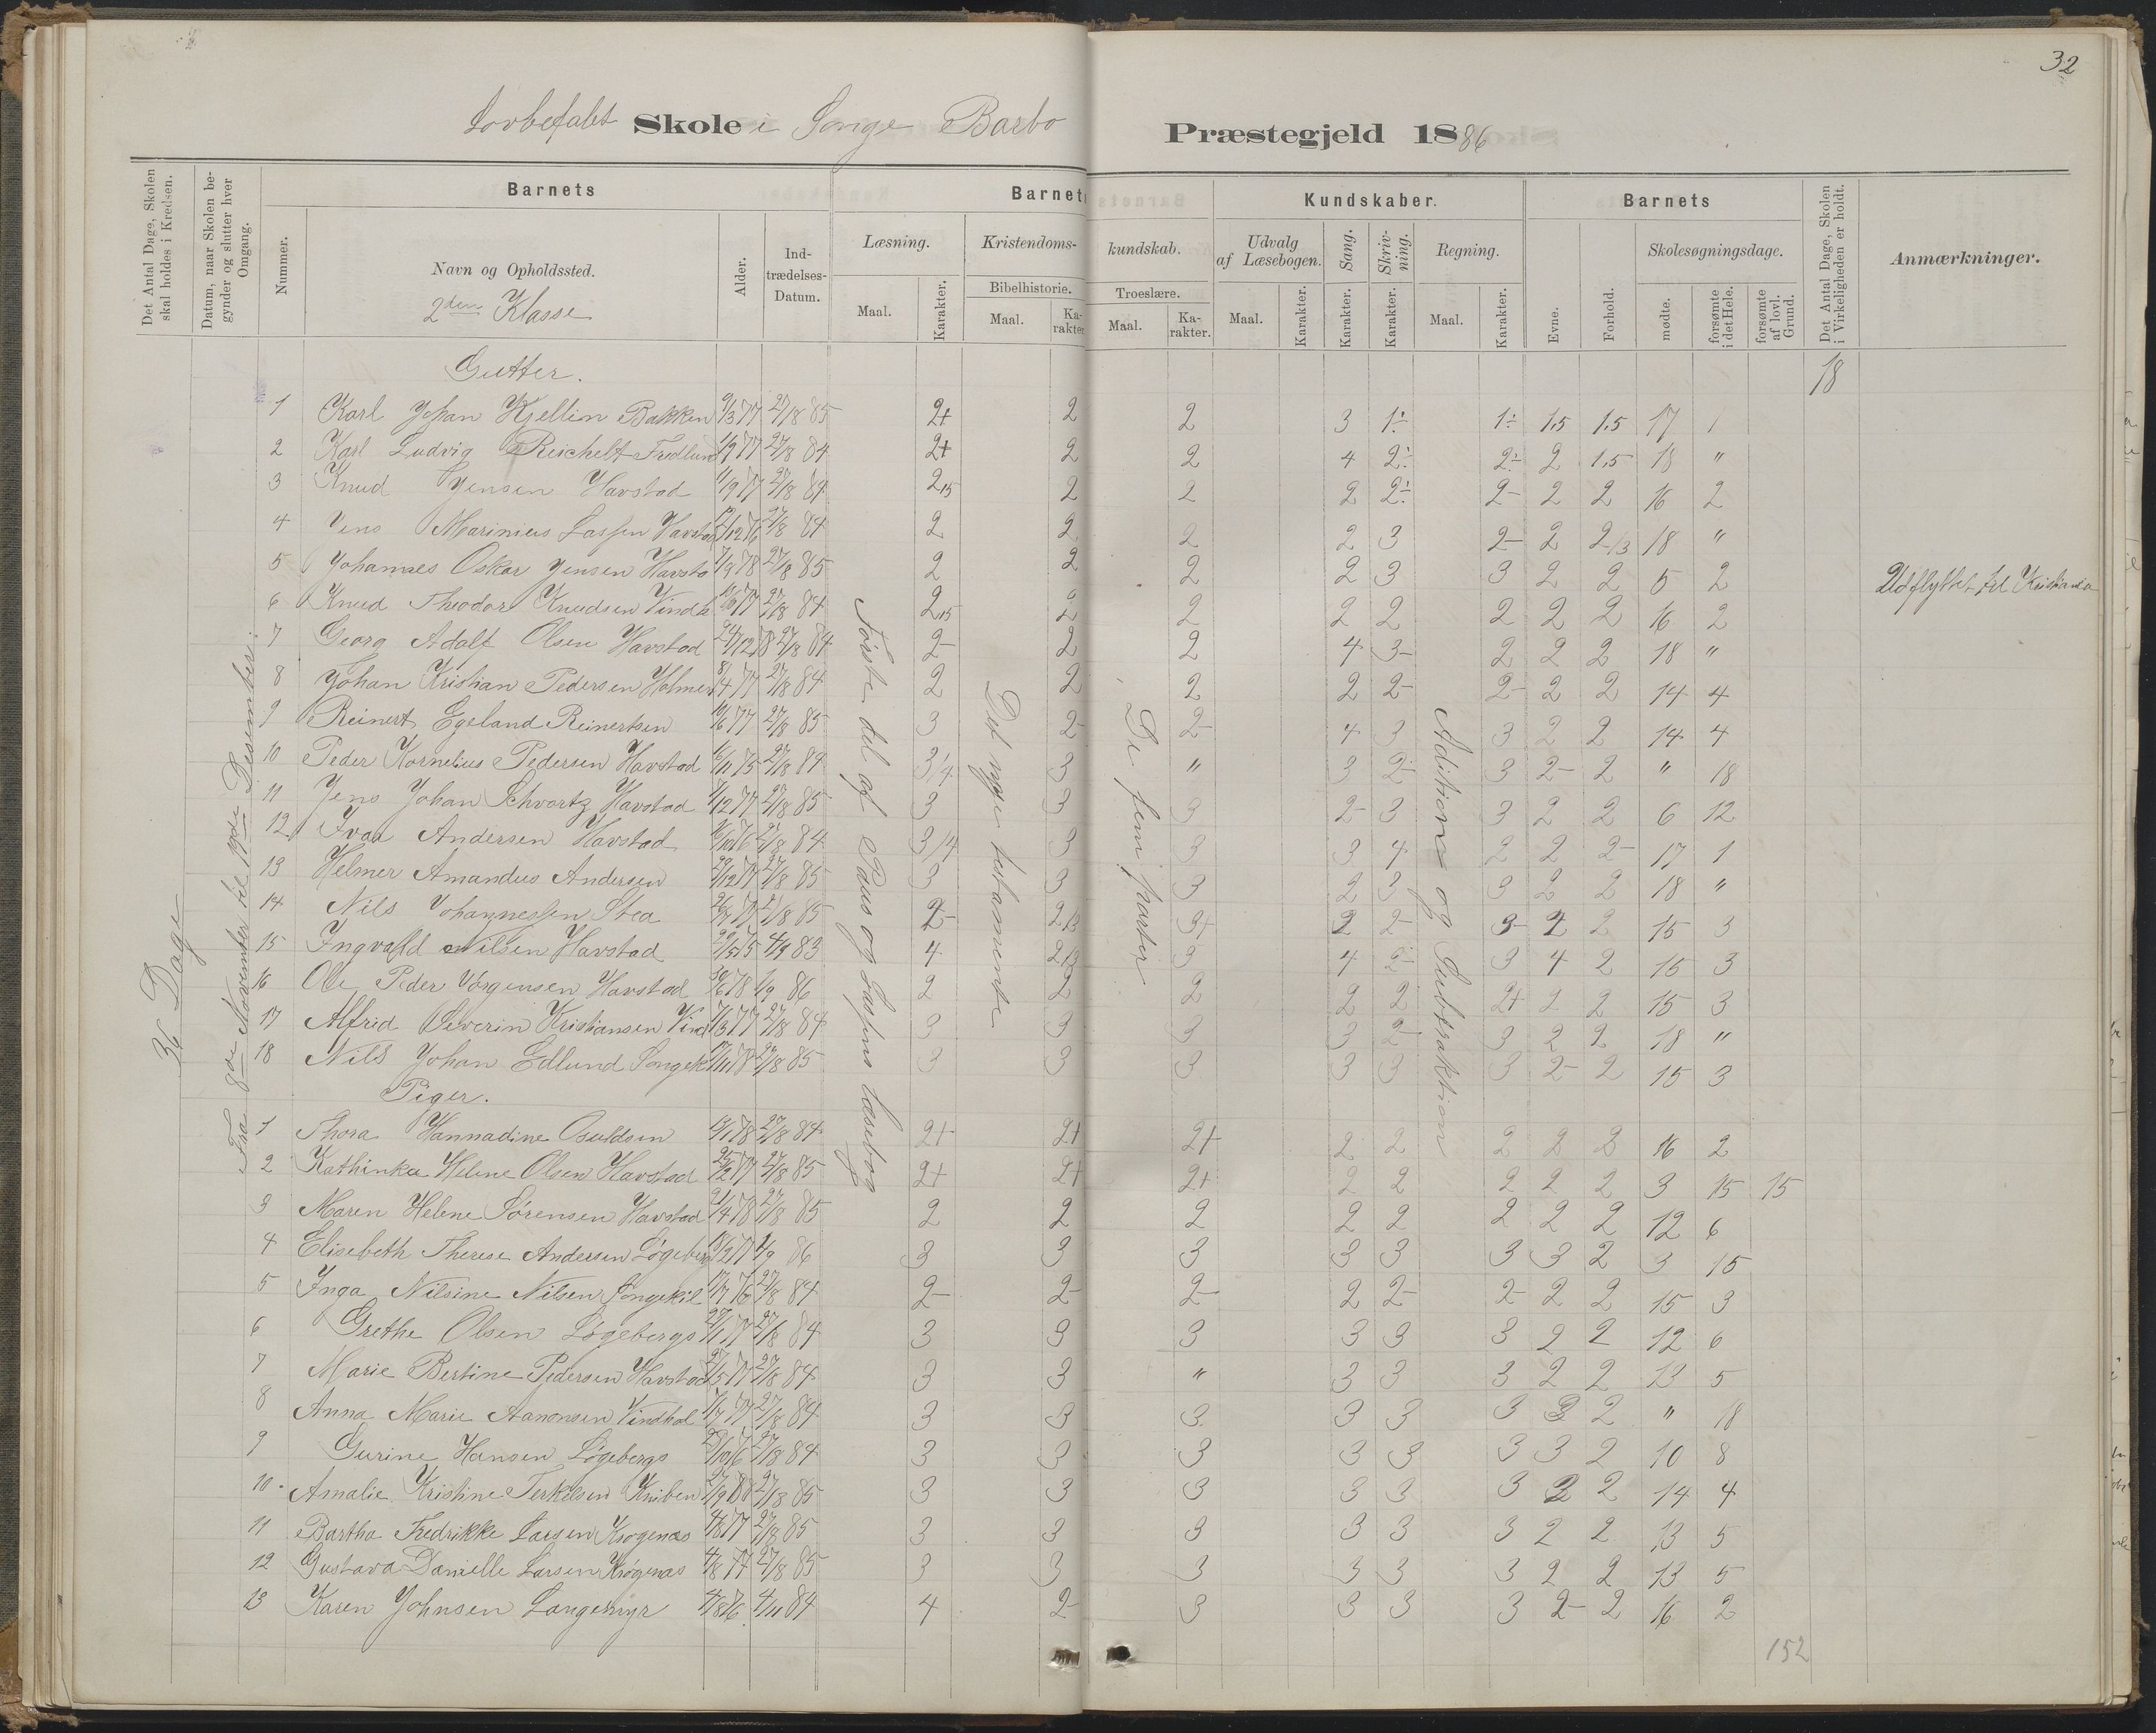 32
Lovbefalet Skole i Songe Barbo Præstegjeld 1886
Det Antal Dage, Skolen skal holdes i Kredsen.
Datum, naar Skolen begynder og slutter hver Omgang.
Barnets
Nummer.
Navn og Opholdssted.
2den Klasse
Alder.
Indtrædelses-Datum.
Barnets
Læsning.
Maal.
Karakter.
Kristendoms-kundskab.
Bibelhistorie.
Maal.
Karakter
Troeslære.
Maal.
Karakter.
Kundskaber.
Udvalg af Læsebogen.
Maal.
Karakter.
Sang.
Karakter.
Skrivning.
Karakter.
Regning.
Maal.
Karakter.
Barnets
Evne.
Forhold.
Skolesøgningsdage.
mødte.
forsømte i det Hele.
forsømte af lovl. Grund.
Det Antal Dage, Skolen i Virkeligheden er holdt.
Anmærkninger.
36 Dage
Fra 8de November til 19de Desember.
Første del af Paus og Lassens læsebog
Det nye testamente
De fem parter
Adition og Subtraktion
18
Gutter.
1 Karl Johan Kjellin Bakken 9/3 77 27/8 85 2+ 2 2 3 1÷ 1÷ 1,5 1,5 17 1
2 Karl Ludvig Reichelt Fredlund 1/9 77 27/8 84 2+ 2 2 4 2÷ 2÷ 2 1,5 18 "
3 Knud Jensen Havstad 1/9 77 27/8 84 2,15 2 2 2 2÷ 2- 2 2 16 2
4 Jens Marinius Lassen Havstad 12 76 27/8 84 2 2 2 2 3 2- 2 2/3 18 "
5 Johannes Oskar Jensen Havsta 7/9 78 27/8 85 2 2 2 2 3 3 2 2 5 2 Udflyttet til Kristiania
6 Knud Theodor Knudsen Vindh 77 27/8 84 2,15 2 2 2 2 2 2 2 16 2
7 Georg Adolf Olsen Havstad 24/12 27/8 84 2- 2 2 4 3- 2 2 2 18 "
8 Johan Kristian Pedersen Holmen 8/4 77 27/8 84 2 2 2 2 2- 2- 2 2 14 4
9 Reinert Egeland Reinertsen 10/6 77 27/8 85 3 2- 2- 4 3 3 2 2 14 4
10 Peder Kornelius Pedersen Havstad 16/11 75 27/8 84 3/4 3 " 3 2- 3 2- 2 " 18
11 Jens Johan Schvartz Havstad 12 77 27/8 85 3 3 3 2- 3 3 2 2 6 12
12 Ivar Andersen Havstad 10 76 27/8 84 3/4 3 3 3 4 2 2 2- 17 1
13 Helmer Amandus Andersen 12 77 27/8 85 3 3 3 2 3 3 2 2 18 "
14 Nils Johannessen Stea 77 27/8 85 2- 2/3 3+ 2 2- 3- 2 2 15 3
15 Ingvald Nilsen Havstad 75 4/9 83 4 2/3 3 4 2- 3 4 2 15 3
16 Ole Peder Jørgensen Havstad 30/6 78 1/9 86 2 2 2 2 2 2+ 2 2 15 3
17 Alfred Severin Kristiansen Vind 3 77 27/8 84 3 3 3 3 2- 3 2 2 18 "
18 Nils Johan Edlund Songek 11 78 27/8 85 3 3 3 3 3 3 2- 2 15 3
Piger.
1 Thora Hannadine Osuldsen 1 78 27/8 84 2+ 2+ 2+ 2 2 2 2 2 16 2
2 Kathinka Helene Olsen Havstad 25/12 77 27/8 85 2+ 2+ 2+ 2 2 2 2 2 3 15 15
3 Maren Helene Sørensen Havstad 21/4 78 27/8 85 2 2 2 2 2 2 2 2 12 6
4 Elisebeth Therese Andersen Løgeberg 77 1/9 86 3 3 3 3 3 3 3 2 3 15
5 Inga Nilsine Nilsen Songekil 76 27/8 84 2- 2- 2- 2 2- 2- 2 2 15 3
6 Grethe Olsen Løgebergs 77 27/8 84 3 3 3 3 3 3 2 2 12 6
7 Marie Bertine Pedersen Havstad 5 77 27/8 84 3 3 " 3 3 3 2 2 13 5
8 Anna Marie Aanonsen Vindhol 77 27/8 84 3 3 3 3 3 3 3 2 " 18
9 Gurine Hansen Løgebergs 10 76 27/8 84 3 3 3 3 3 3 3 2 10 8
10 Amalie Kristine Terkelsen Kniben 27/8 85 3 3 3 3 3 3 2 2 14 4
11 Bartha Fredrikke Larsen Krøgenæs 77 27/8 85 3 3 3 3 3 3 2 2 13 5
12 Gustava Danielle Larsen Krøgenæs 4/8 77 27/8 85 3 3 3 3 3 3 2 2 13 5
13 Karen Johnsen Langemyr 4/8 76 4/11 84 4 2- 3 3 3 3 2- 2 16 2
152